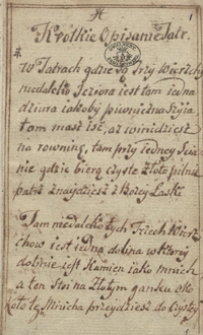 Krótkie Opisanie Tatr.
1
W Tatrach gdzie są trzy Wierzchy
niedaleko Jeziora iest tam iedna
dziura iakoby piwniczna Szyia
tam masz iść, aż wnidziesz
na rowninę, tam przy iedney Scianie
nie gdzie biorą czyste złoto pilnie
patrz znaydziesz z Bożey Łaski
Tam niedaleko tych Trzech Wierz
chow iest iedna dolina w ktorey
dolinie iest Kamien iako mnich
a ten stoi na Złotym ganku oko
ło tego Mnicha przeydziesz do Czystey